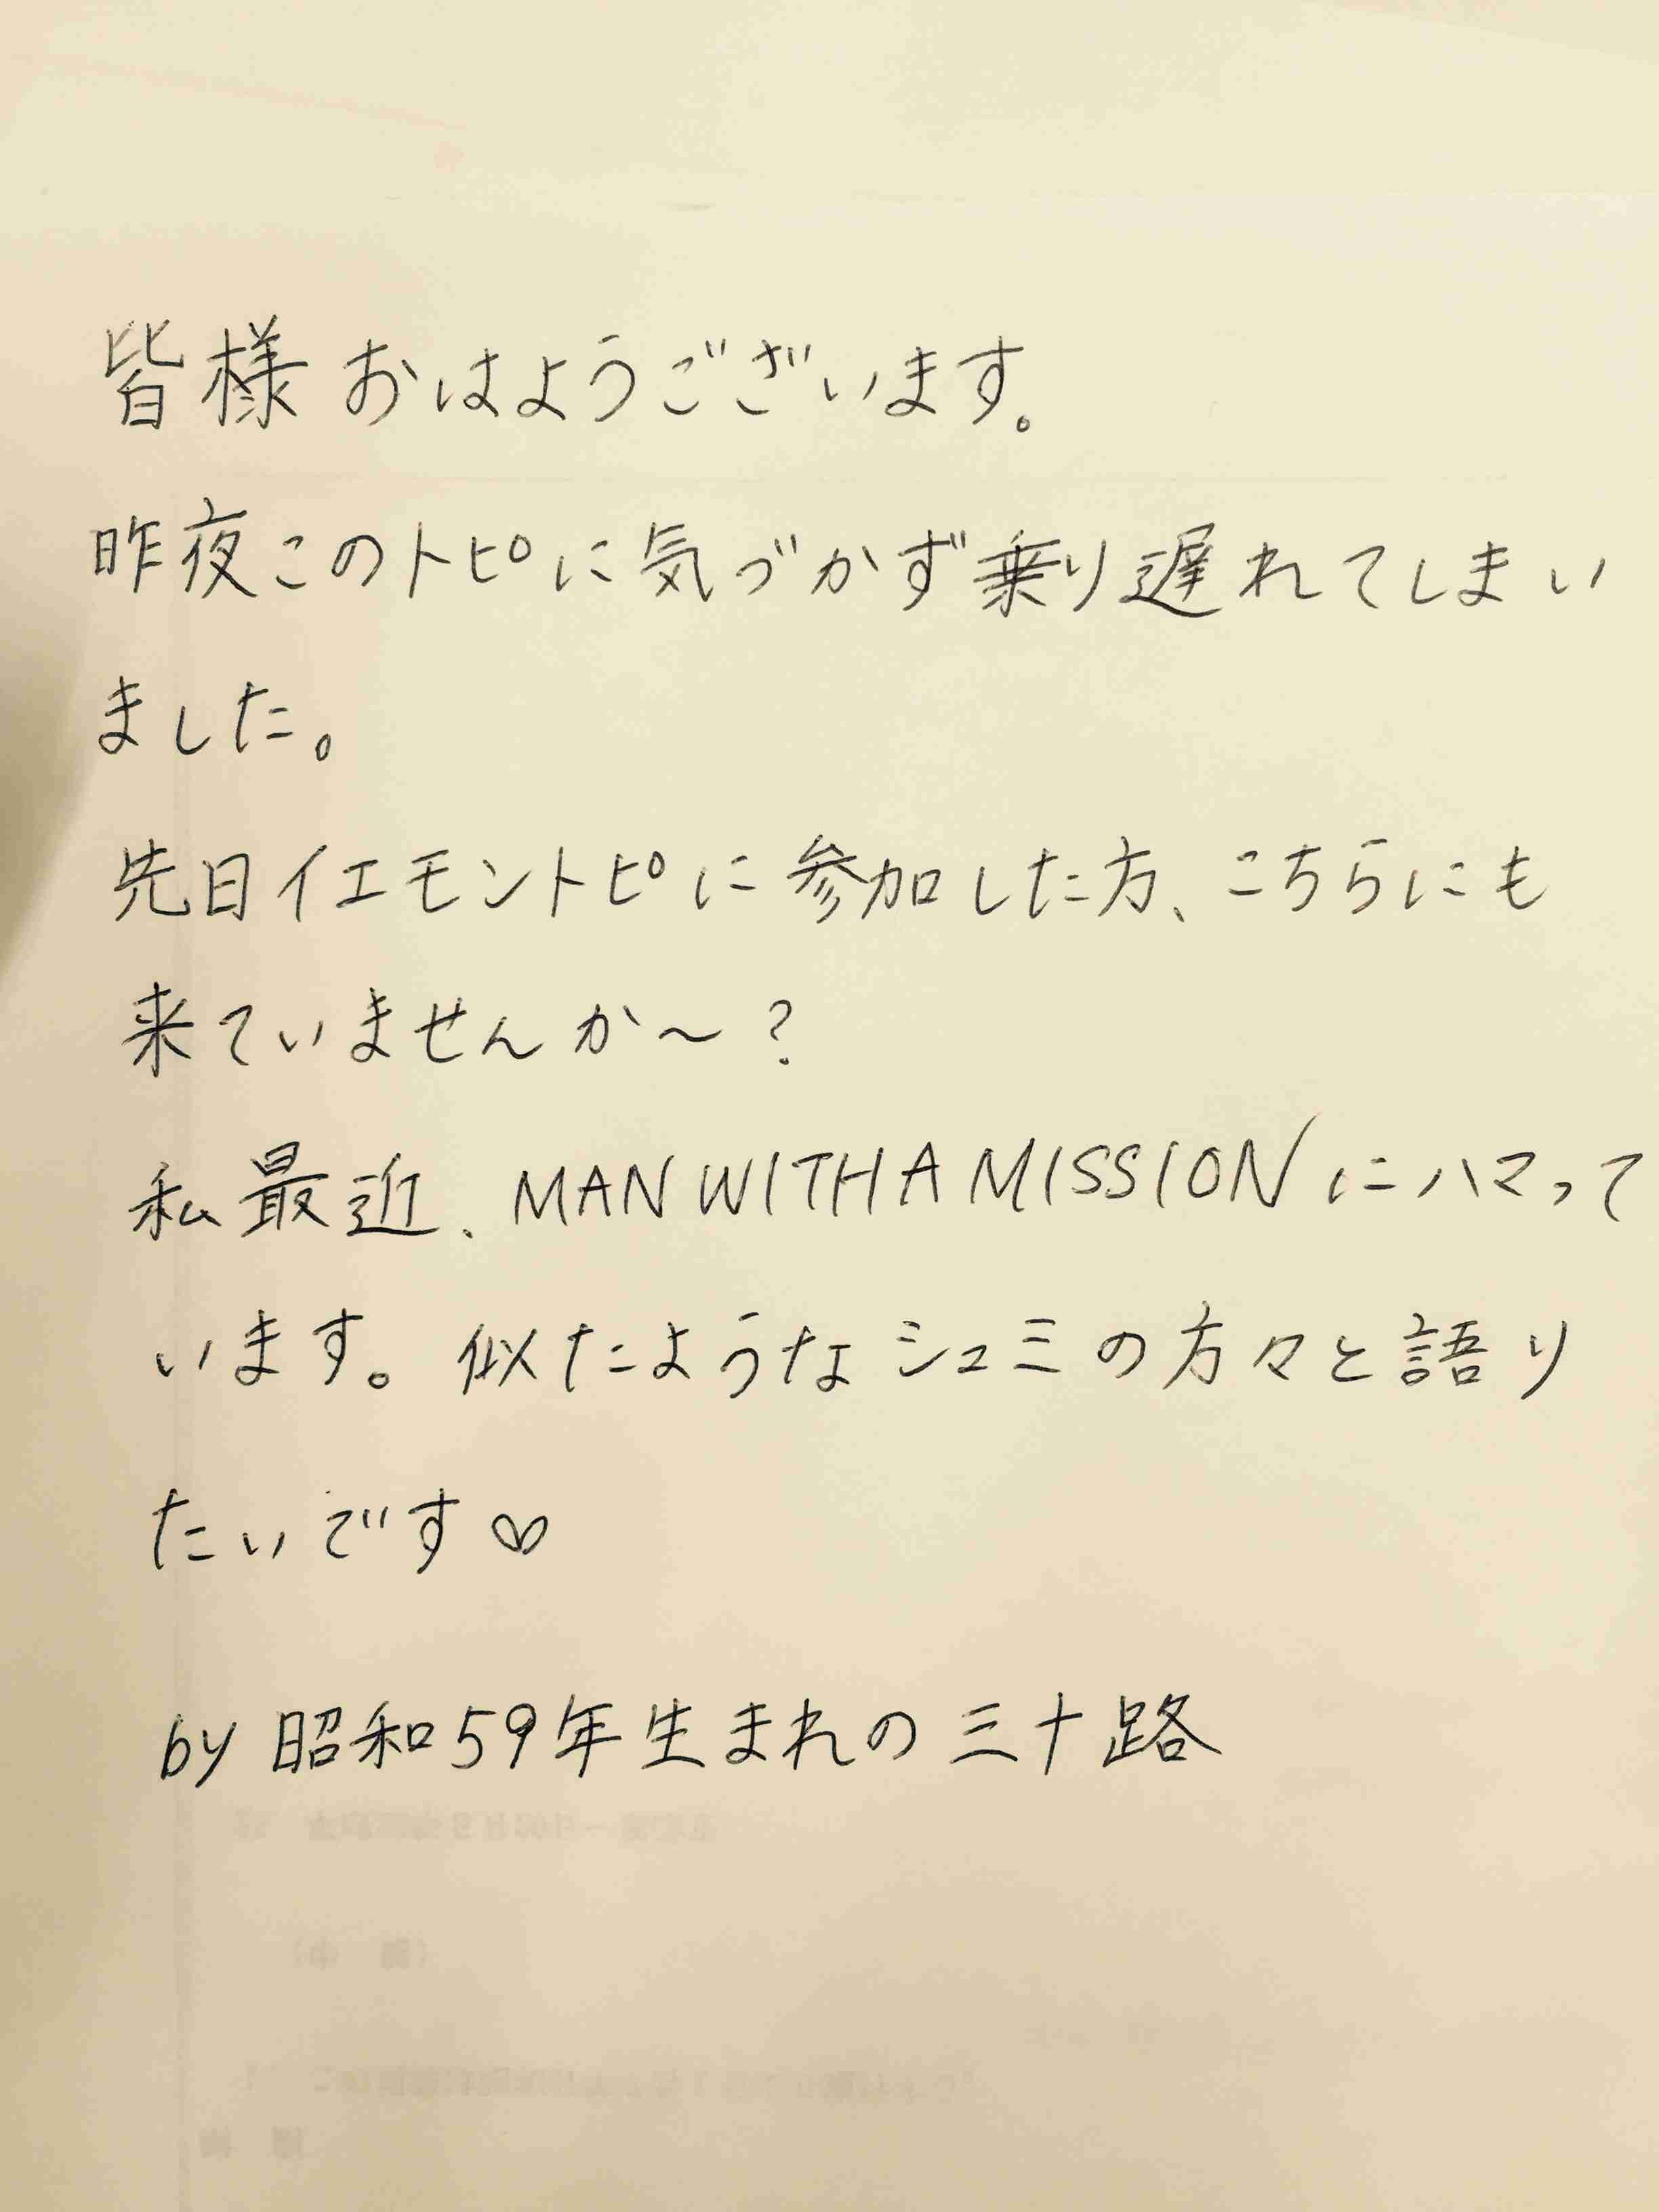 皆様おはようございます。
昨夜このトピに気づかず乗り遅れてしまい
ました。
先日イエモントピに参加した方、こちらにも
来ていませんか～?
私最近、MAN WITH A MISSIONにハマって
います。似たようなシュミの方々と語り
たいです♡
by 昭和59年生まれの三十路